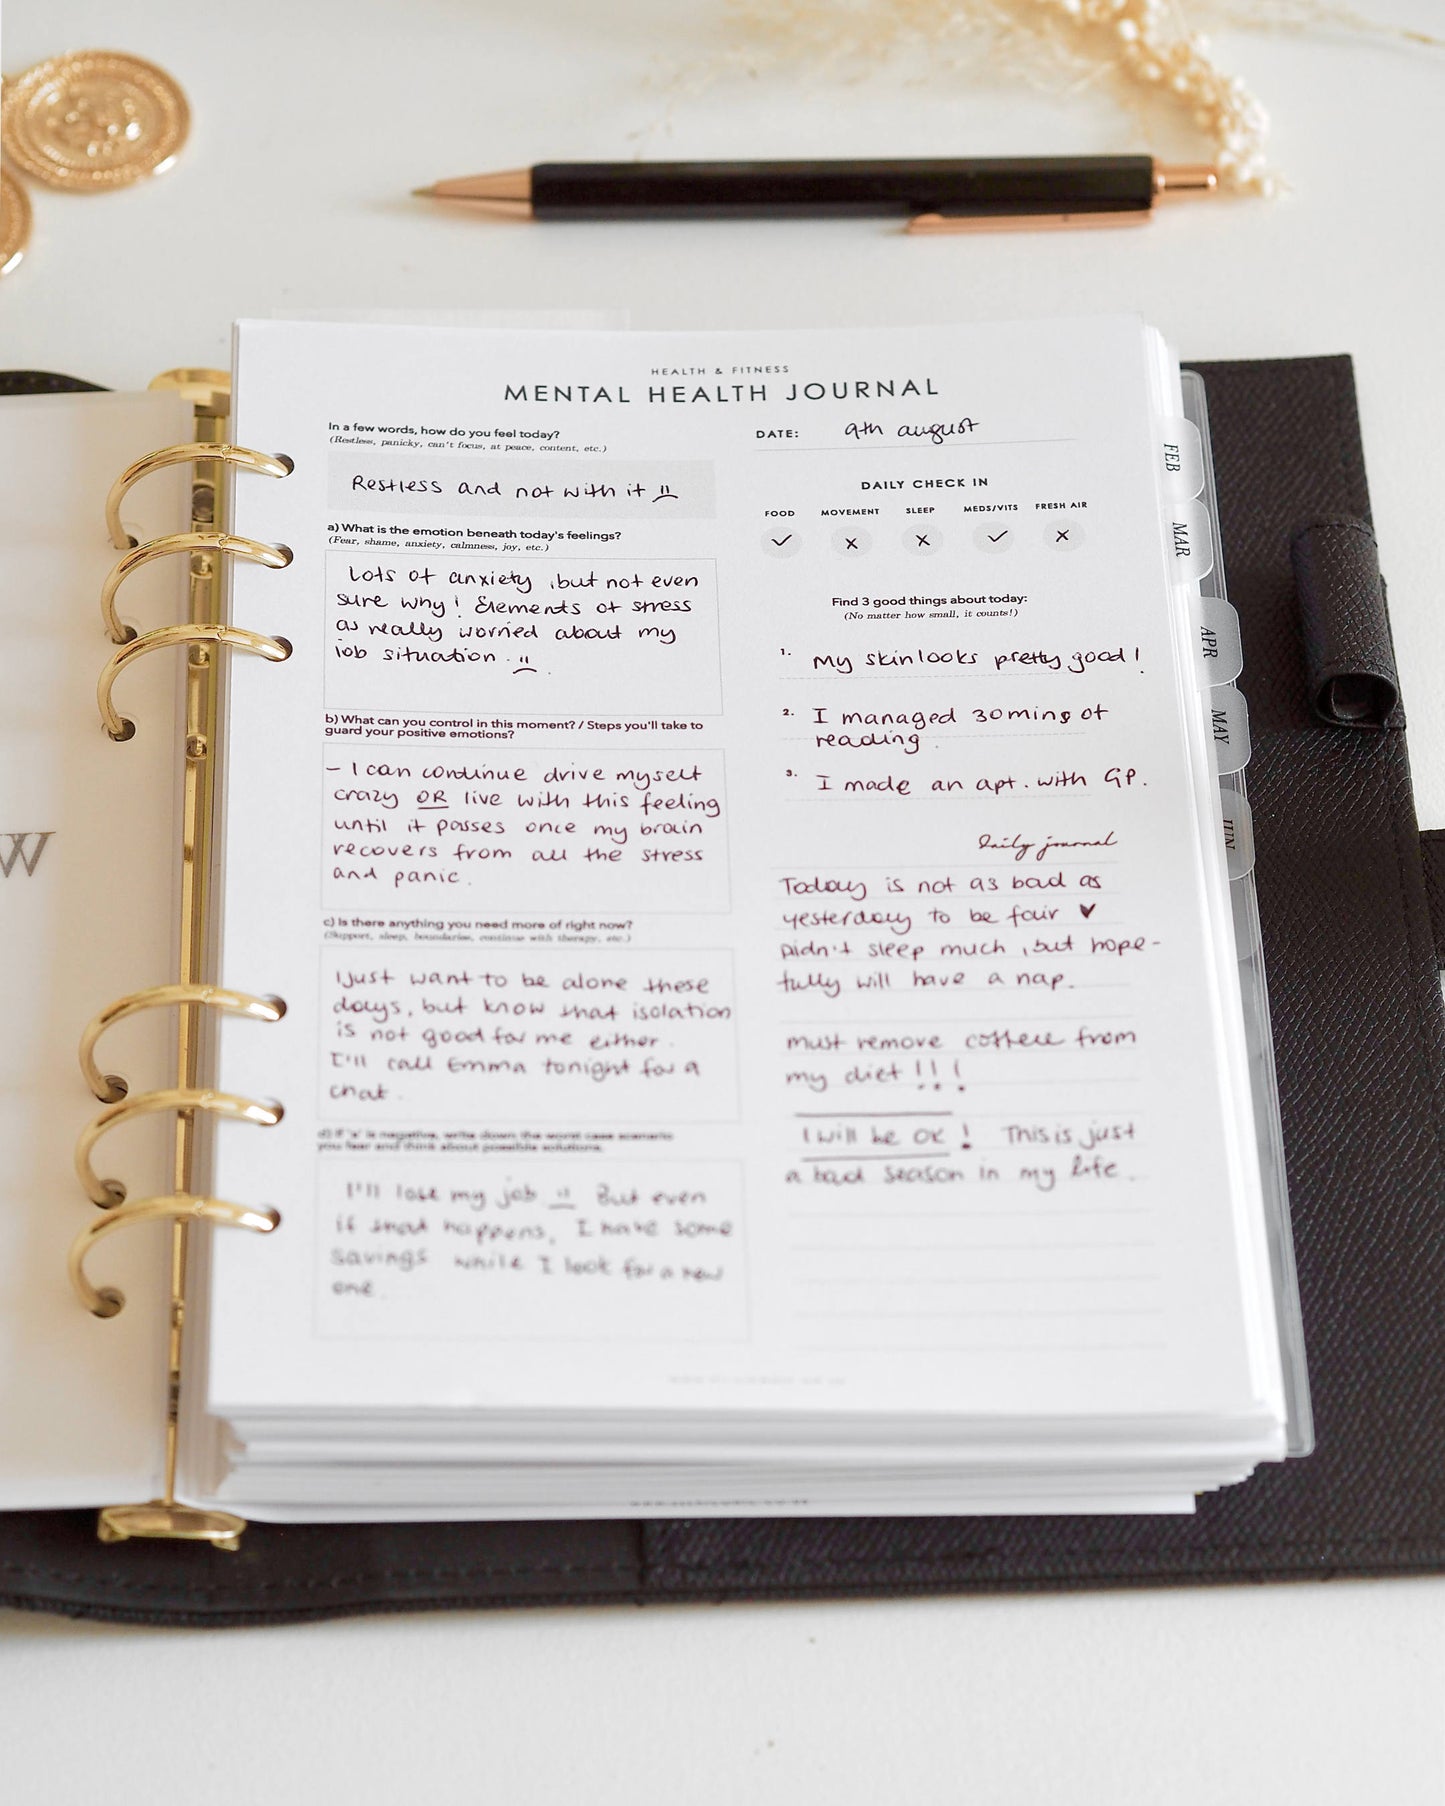 HEALTH & FITNESS
MENTAL HEALTH JOURNAL
In a few words, how do you feel today?
(Restless, panicky, can't focus, at peace, content, etc.)
Restless and not with it
a) What is the emotion beneath today's feelings?
(Fear, shame, anxiety, calmness, joy, etc.)
Lots of anxiety, but not even
sure why! Elements of stress
as really worried about my
job situation.
b) What can you control in this moment? / Steps you'll take to
guard your positive emotions?
- I can continue drive myself
crazy OR live with this feeling
until it passes once my brain
recovers from all the stress
and panic.
c) Is there anything you need more of right now?
(Support, sleep, boundaries, continue with therapy, etc.)
I just want to be alone these
days, but know that isolation
is not good for me either.
I'll call Emma tonight for a
chat.
d) If 'a' is negative, write down the worst case scenario
you fear and think about possible solutions.
I'll lose my job But even
if that happens, I have some
savings while I look for a new
one.
DATE: 9th august
DAILY CHECK IN
FOOD MOVEMENT SLEEP MEDS/VITS FRESH AIR
✓ x x ✓ x
Find 3 good things about today:
(No matter how small, it counts!)
1. My skin looks pretty good!
2. I managed 30mins of
reading.
3. I made an apt. with GP.
Daily journal
Today is not as bad as
yesterday to be fair ♥
Didn't sleep much, but hope-
fully will have a nap.
must remove coffeee from
my diet !!!
I will be OK! This is just
a bad season in my life.
FEB
MAR
APR
MAY
JUN
W